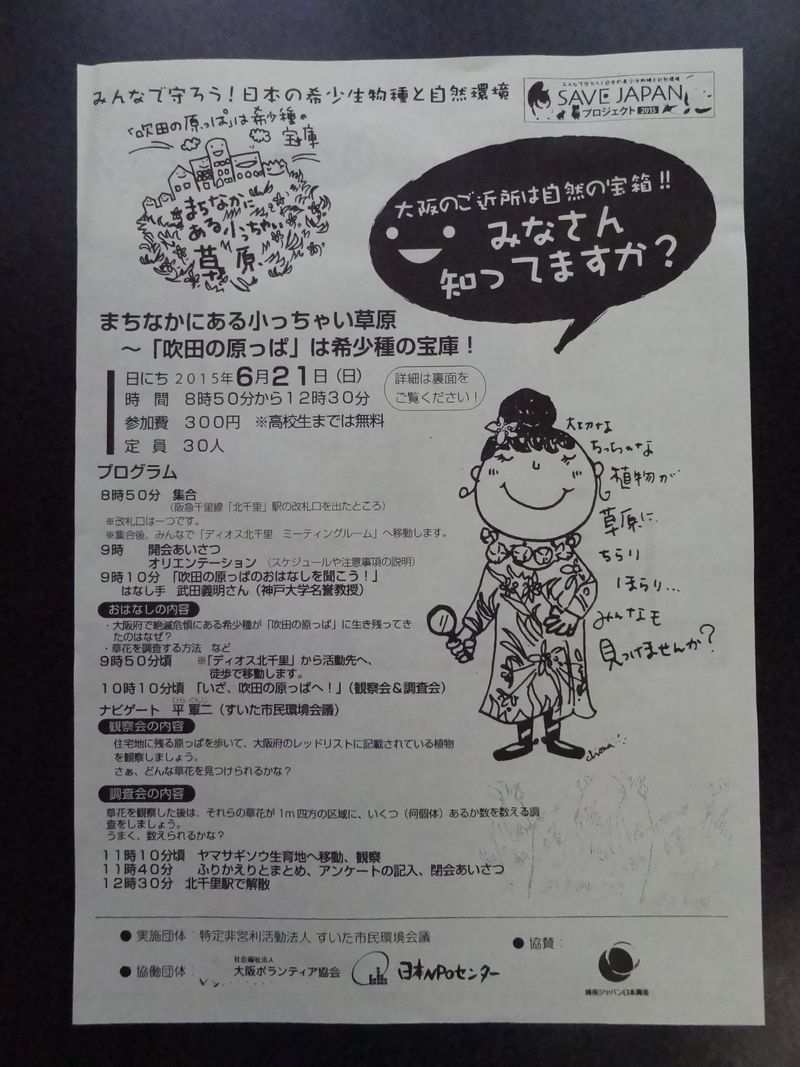 みんなで守ろう！日本の希少生物種と自然環境
みんなで守ろう！日本の希少生物種と自然環境
SAVE JAPAN
プロジェクト 2015
「吹田の原っぱ」は希少種の
宝庫
まちなかに
ある小っちゃい
草原
大阪のご近所は自然の宝箱!!
みなさん
知ってますか？
まちなかにある小っちゃい草原
～「吹田の原っぱ」は希少種の宝庫！
日にち 2015年6月21日（日）
時間 8時50分から12時30分
参加費 300円 ※高校生までは無料
定員 30人
詳細は裏面を
ご覧ください！
プログラム
8時50分 集合
（阪急千里線「北千里」駅の改札口を出たところ）
※改札口は一つです。
※集合後、みんなで「ディオス北千里 ミーティングルーム」へ移動します。
9時 開会あいさつ
オリエンテーション （スケジュールや注意事項の説明）
9時10分 「吹田の原っぱのおはなしを聞こう！」
はなし手 武田義明さん（神戸大学名誉教授）
おはなしの内容
・大阪府で絶滅危惧にある希少種が「吹田の原っぱ」に生き残ってき
たのはなぜ？
・草花を調査する方法 など
9時50分頃 ※「ディオス北千里」から活動先へ、
徒歩で移動します。
10時10分頃 「いざ、吹田の原っぱへ！」（観察会＆調査会）
ナビゲート 平 軍二（すいた市民環境会議）
ひら ぐんじ
観察会の内容
住宅地に残る原っぱを歩いて、大阪府のレッドリストに記載されている植物
を観察しましょう。
さぁ、どんな草花を見つけられるかな？
調査会の内容
草花を観察した後は、それらの草花が1m四方の区域に、いくつ（何個体）あるか数を数える調
査をしましょう。
うまく、数えられるかな？
11時10分頃 ヤマサギソウ生育地へ移動、観察
11時40分 ふりかえりとまとめ、アンケートの記入、閉会あいさつ
12時30分 北千里駅で解散
大切な
ちっちゃな
植物が
草原に
ちらり
ほらり...
みんなも
見つけませんか？
chona
● 実施団体： 特定非営利活動法人 すいた市民環境会議
● 協働団体： 社会福祉法人 大阪ボランティア協会 日本NPOセンター
● 協賛：
損保ジャパン日本興亜